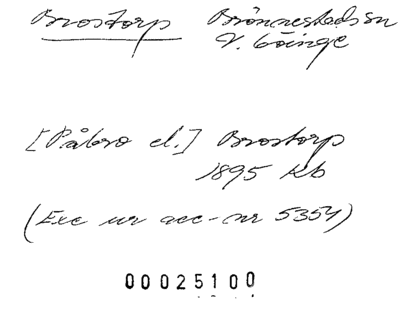 Brostorp Brönnestads sn
V. Göinge
[Påbro el.] Brostorp
1895 Kb
(Exc ur acc-nr 5354)
00025100